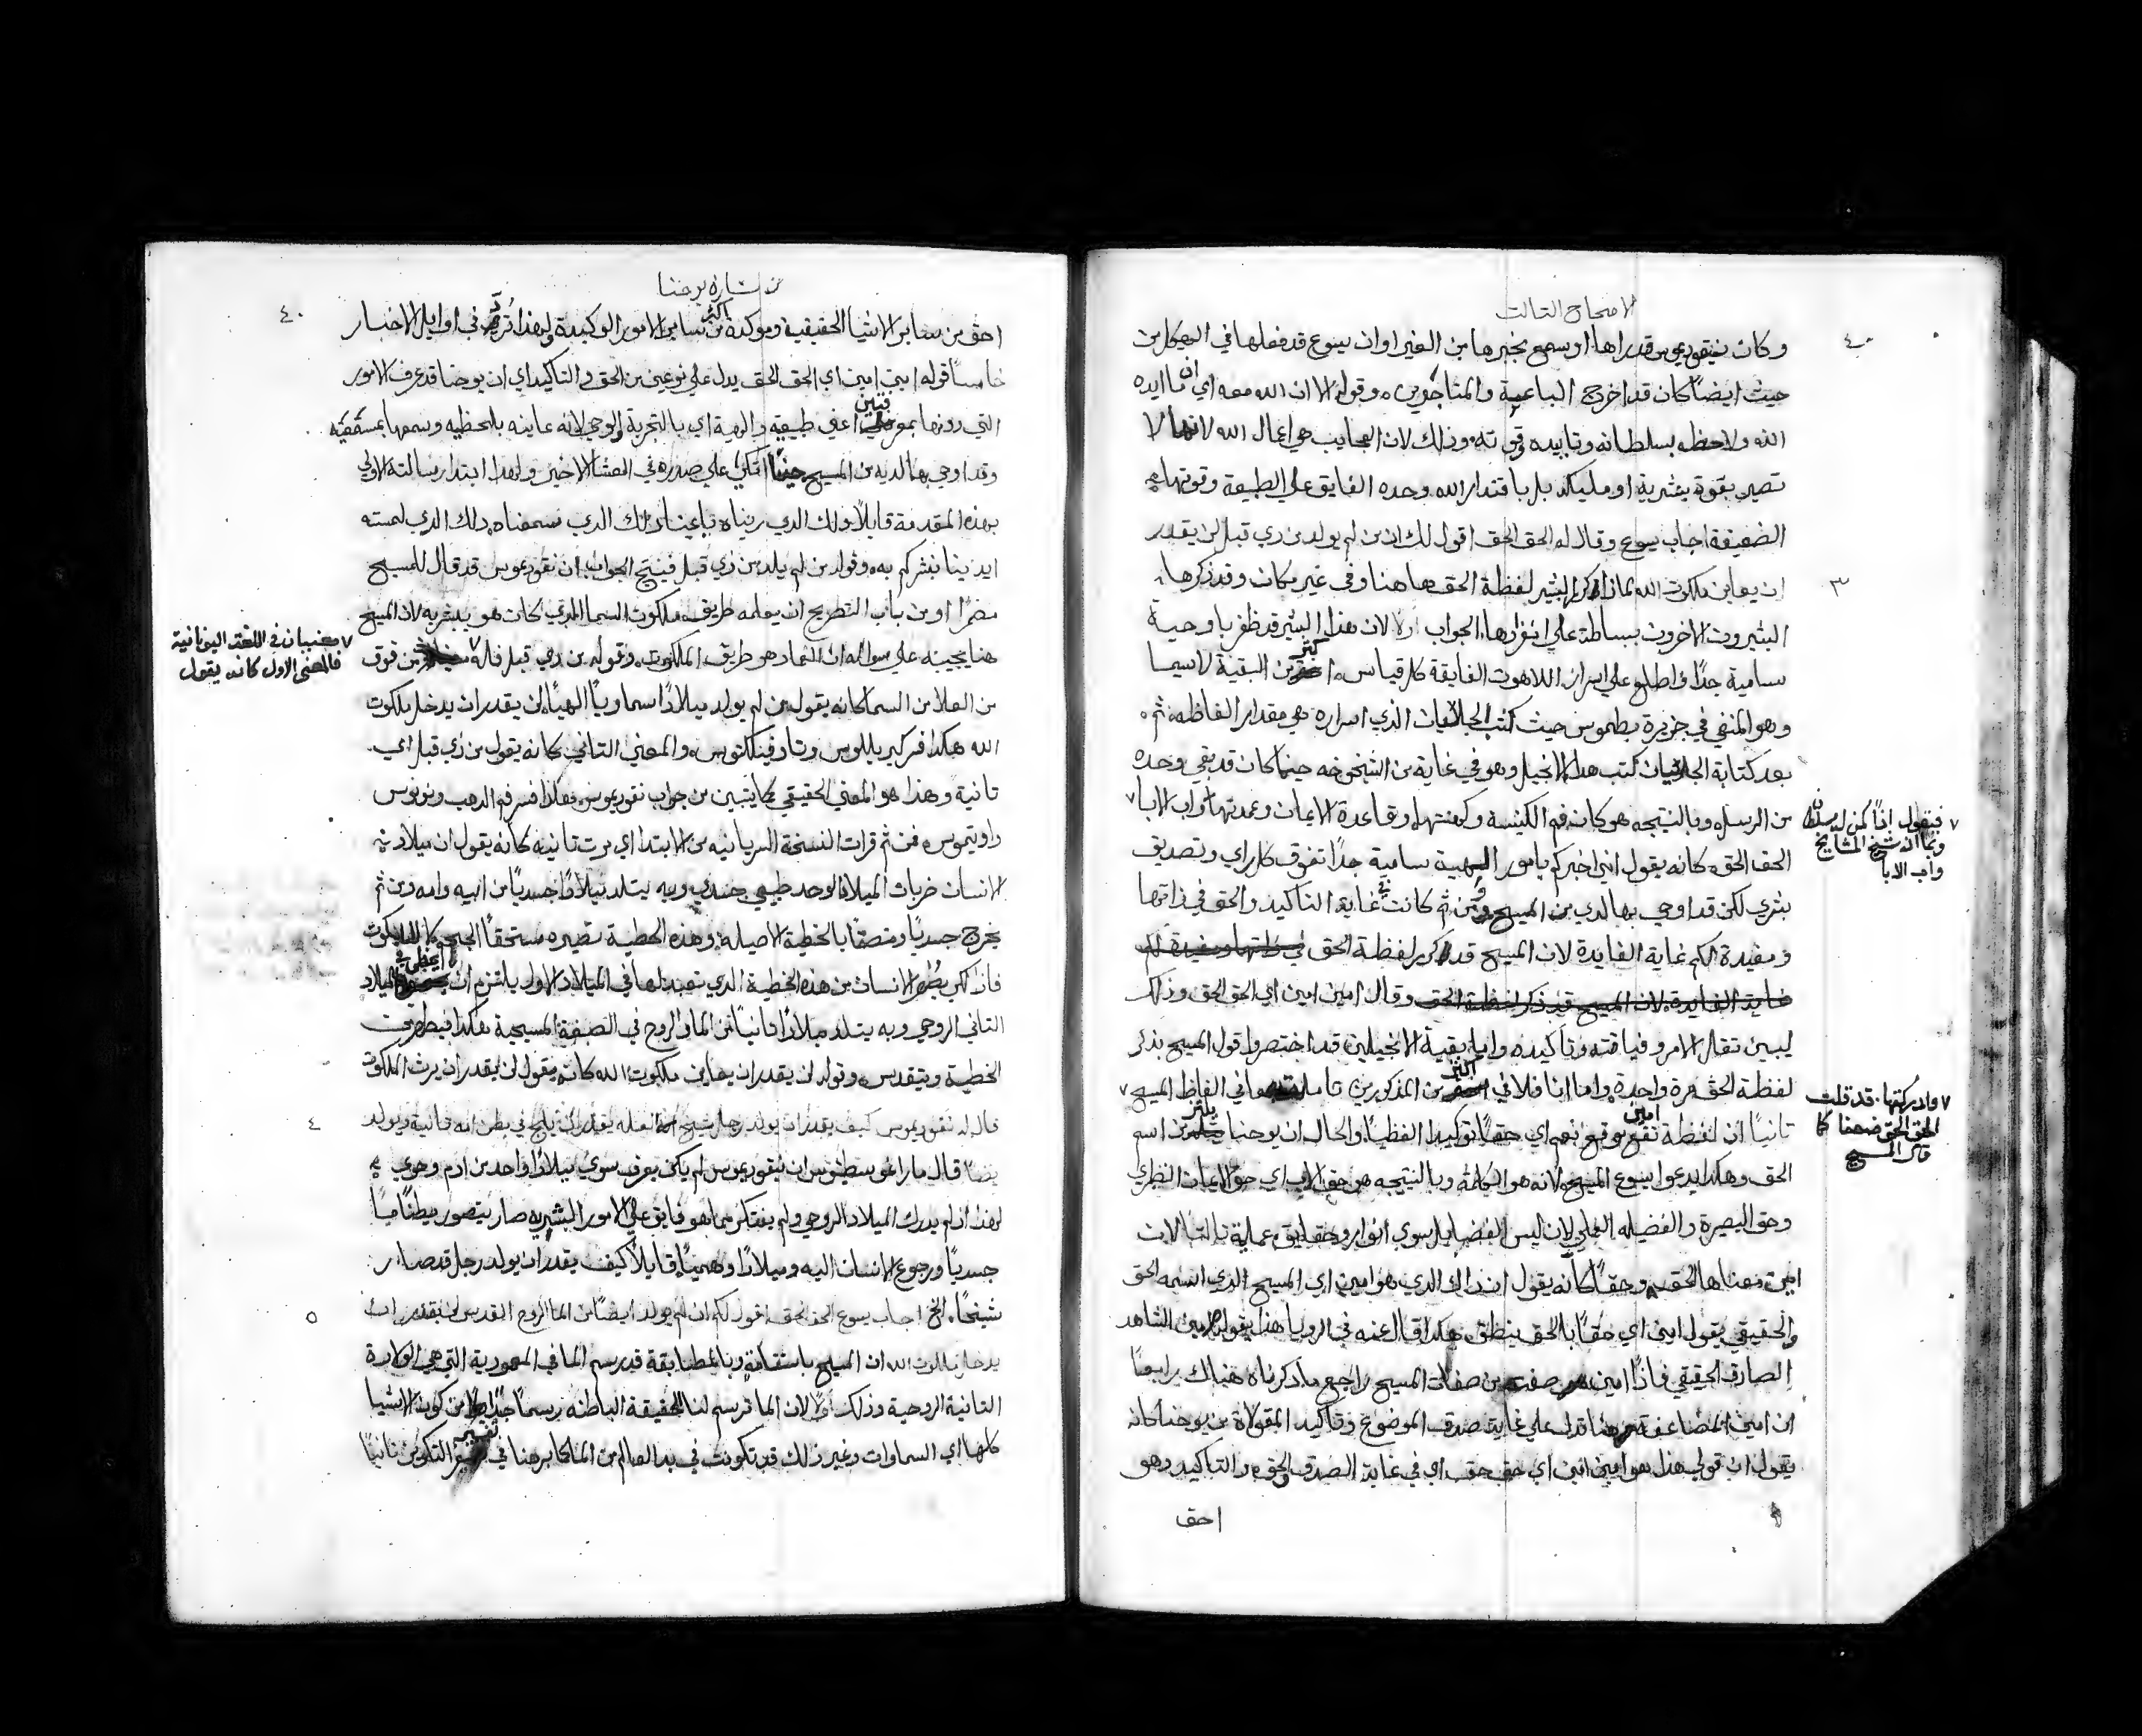 الاصحاح التالت
٤٠
وكان نيقوديموس قدراها او سمع بخبرها من الغير او ان يسوع قد فعلها في الهيكل من
حيث ايضًا كان قد اخرج الباعية والمتاجرين، وقوله الا ان الله معه اي ان ما ايده
الله ولاحظه بسلطانه وتاييده وقوته وذلك لان العجايب هي اعمال الله لانها لا
تصير بقوة بشرية او مليكية بل باقتدار الله وحده الفايق علي الطبيعة وقوتها
الضعيفة اجاب يسوع وقال له الحق الحق اقول لك ان من لم يولد من ذي قبل لن يقدر
٣
ان يعاين ملكوت الله لماذا كرر البشير لفظة الحق هاهنا وفي غير مكان وقد ذكرها
البشيرون الاخرون ببساطة علي انفرادها، الجواب اولا لان هذا البشير قد ظفر باوحية
سامية جدًا واطلع علي اسرار اللاهوت الفايقة كل قياس، اكثر من البقية لاسيما
وهو المنفي في جزيرة بطموس حيث كتب الجليان الذي اسراره هي مقدار الفاظه، ثم
بعد كتابة الجليان كتب هذا الانجيل وهو في غاية من الشيخوخه حينما كان قد بقي وحده
من الرسل، وبالنتيجه هو كانه فم الكنيسة وقاعدة الايمان وعمدتها واب الابا
٧ فيقول اذًا كمن له سلطان
وبما انه شيخ المشايخ
واب الابا
الحق الحق، كانه يقول انني اخبركم بامور الهية سامية جدًا تفوق كل راي وتصديق
بشري لكن قد اوحي بها لدي من المسيح ومن ثم كانت في غاية التاكيد والحق في ذاتها
ومفيدة لكم غاية الفايدة لان المسيح قد كرر لفظة الحق في ذاتها ومفيدة لكم
غاية الفايدة، لان المسيح قد ذكر لفظة الحق وقال امين امين اي الحق الحق وذلك
ليبين ثقل الامر وفياقته وتاكيده واما بقية الانجيليين قد اختصروا قول المسيح بذكر
لفظة الحق مرة واحدة، واما انا فلاني اكثر من المذكورين تاملت معاني الفاظ المسيح ٧
٧ وادركتها، قد قلت
الحق الحق ضعفا كما
قاله المسيح
تانيًا ان لفظة امين تقع موقع نعم اي حقًا توكيدًا لفظيًا، والحال ان يوحنا يلتز من اسم
الحق وهكذا يدعوا يسوع المسيح لانه هو الكلمة وبالنتيجه هو حق الاب اي حق الايمان النظري
وحق البصيرة والفضيله العملي لان ليس الفضايل سوي انوار وحقايق عملية ثالثا لان
امين معناها الحق، وحقًا كانه يقول ان ذاك الذي هو امين اي المسيح الذي اسمه الحق
والحقيقي يقول امين اي حقًا بالحق ينطق، هكذا قال عنه في الرويا هذا يقوله الامين الشاهد
الصادق الحقيقي فاذًا امين صفة من صفات المسيح راجع ما ذكرناه هناك رابعًا
ان امين المضاعفة هنا تدل علي غاية صدق الموضوع وتاكيد المقولة من يوحنا كانه
يقول ان قولي هذا هو امين امين اي حق حق اي في غاية الصدق والحق، والتاكيد وهو
احق
من بشارة يوحنا
٤٠
احق من ساير الاشيا الحقيقية وموكدة اكثر من ساير الامور الوكيدة ولهذا في اوايل الاخبار
خامسًا قوله امين امين اي الحق الحق يدل علي نوعين من الحق والتاكيد اي ان يوحنا قد عرف الامور
التي دونها بمعرفتين اعني طبيعية والهية اي بالتجربة والوحي لانه عاينه بلحظيه وسمعها بمسمعيه
وقد اوحي بها لديه من المسيح حينما اتكي علي صدره في العشا الاخير ولهذا ابتدا رسالته الاولي
بهذه المقدمة قايلًا ذلك الذي رايناه باعيننا ذلك الذي سمعناه، ذلك الذي لمسته
ايدينا نبشركم به، وقوله من لم يلد من ذي قبل فينتج الجواب ان نيقوديموس قد قال للمسيح
مضمرًا او من باب التصريح ان يعلمه طريق ملكوت السما الذي كان هو يبشر به لان المسيح
هنا يجيبه علي سواله ان العماد هو طريق الملكوت، وقوله من ذي قبل فله ٧ من فوق
٧ معنيان في اللغة اليونانية
فالمعني الاول كانه يقول
من العلا من السما كانه يقول من لم يولد ميلادًا سماويًا الهيًا لن يقدر ان يدخل ملكوت
الله هكذا فسر كيريللوس وتاوفيلكتوس، والمعني التاني كانه يقول من ذي قبل اي
تانية وهذا هو المعني الحقيقي كما يتبين من جواب نيقوديموس، هكذا فسر فم الدهب ونونوس
واوتيموس، فمن ثم قرات النسخة السريانيه من الابتدا اي مرت تانيه كانه يقول ان ميلاد
الانسان ضربان الميلاد الوحد طبيعي جسدي وبه يتلد ميلادًا جسديًا من ابيه وامه ومن ثم
يخرج جسديًا ومنصبغًا بالخطية الاصيله، وهذه الخطية تصيره مستحقًا الجحيم لا الملكوت
فاذًا لكي يطهر الانسان من هذه الخطية الذي تعبد لها في الميلاد الاول يلتزم ان يحظي في الميلاد
التاني الروحي وبه يتلد ميلادًا تانيًا من الما والروح في الصبغة المسيحية هكذا فيطهر من
الخطية ويتقدس، وقوله لن يقدر ان يعاين ملكوت الله كانه يقول لن يقدر ان يرث الملكوت
٤
قال له نيقوديموس كيف يقدر ان يولد رجل شيخ العله يقدر ان يلج في بطن امه تانية ويولد
ايضًا قال مار اغوسطينوس ان نيقوديموس لم يكن يعرف سوي ميلادًا واحد من ادم وحوي
لهذا اذ لم يدرك الميلاد الروحي ولم يفتكر بما هو فايق علي الامور البشريه صار يتصور بطنًا ميتًا
جسديًا ورجوع الانسان اليه وميلادًا وهميًا، قايلًا كيف يقدر ان يولد رجل قد صار
٥
شيخًا، الخ اجاب يسوع الحق الحق اقول لكم ان لم يولد ايضًا من الما والروح القدس لن يقدر ان
يدخل ملكوت الله ان المسيح باستقامة وبالمطابقة قد رسم الما في المعمودية التي هي الولادة
التانية الروحية وذلك اولًا لان الما ترسم لنا الحقيقة الباطنه رسمًا جدًا من كون الاشيا
كلها اي السماوات وغير ذلك قد تكونت في بد العالم من الما كما برهنا في تفسير سفر التكوين تانيًا